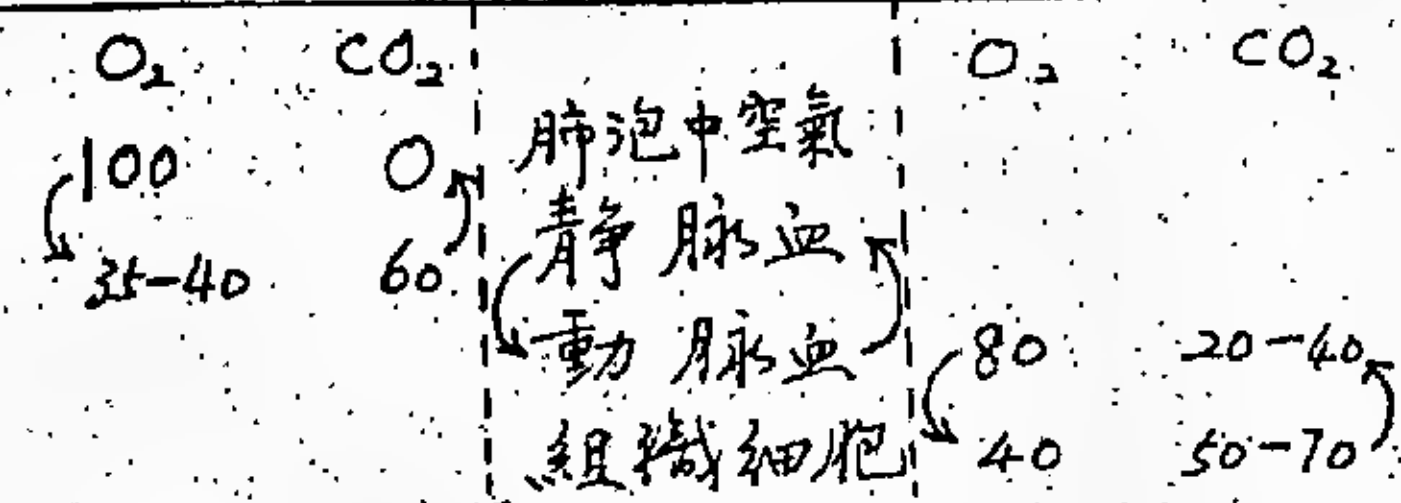 O₂ CO₂ O₂ CO₂
100 0 肺泡中空氣
35-40 60 靜脈血
動脈血 80 20-40
組織細胞 40 50-70